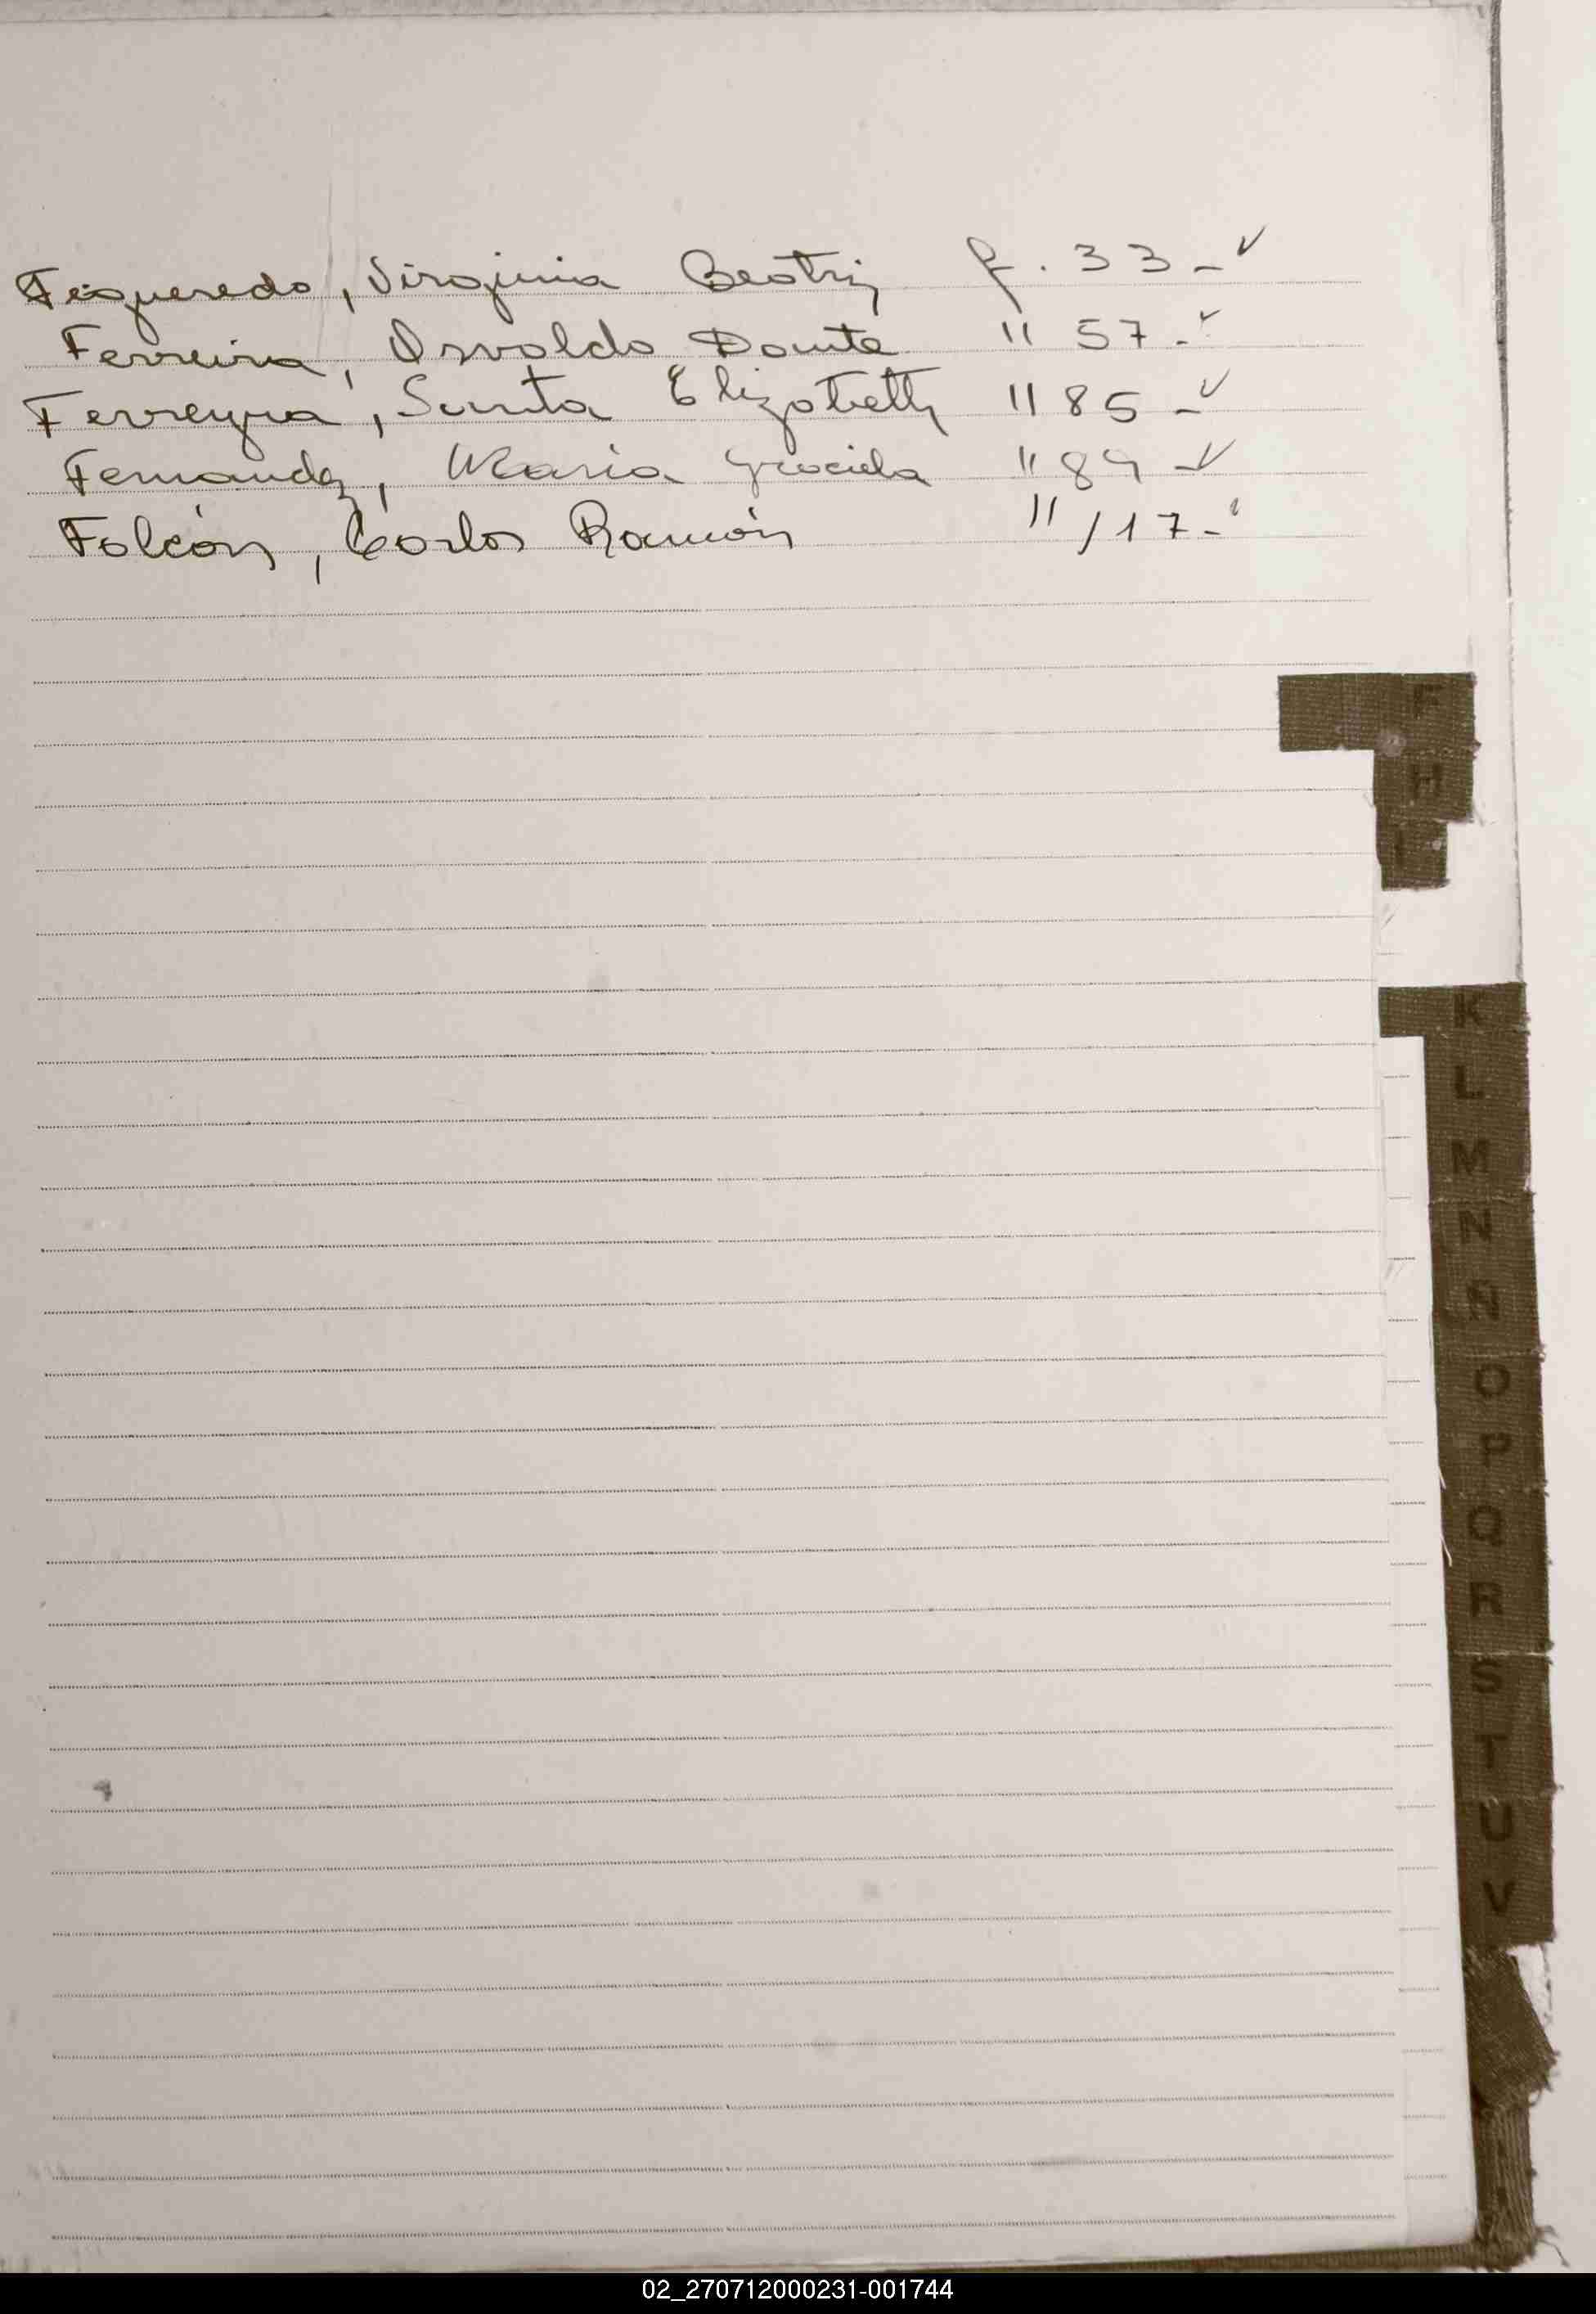 Feigueredo, Virginia Beatriz f. 33 - ✓
Ferreira, Osvaldo Dante " 57 - ✓
Ferreyra, Santa Elizabeth " 85 - ✓
Fernandez, Maria Graciela " 89 - ✓
Folcón, Carlos Ramón " /17 - ✓
F
H
I
K
L
M
N
Ñ
O
P
Q
R
S
T
U
V
02_270712000231-001744